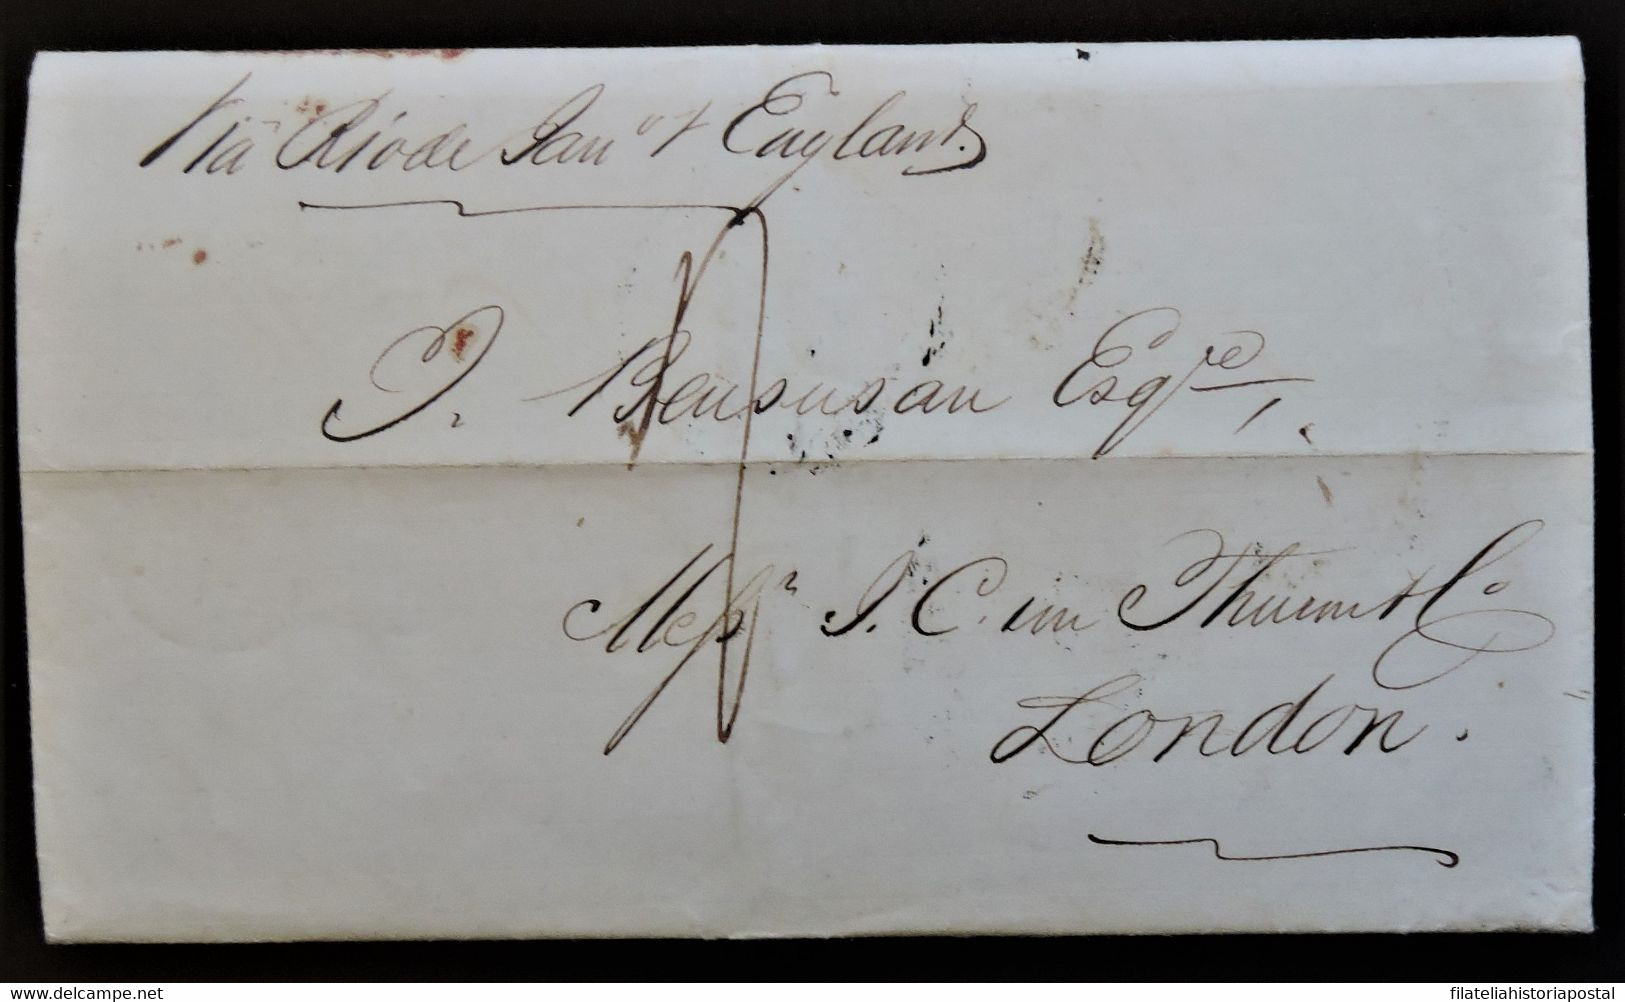 Via Rio de Jan° & England.
J. Bensusan Esqre,
Messrs J. C. im Thurn & Co
London.
www.delcampe.net
filateliahistoriapostal